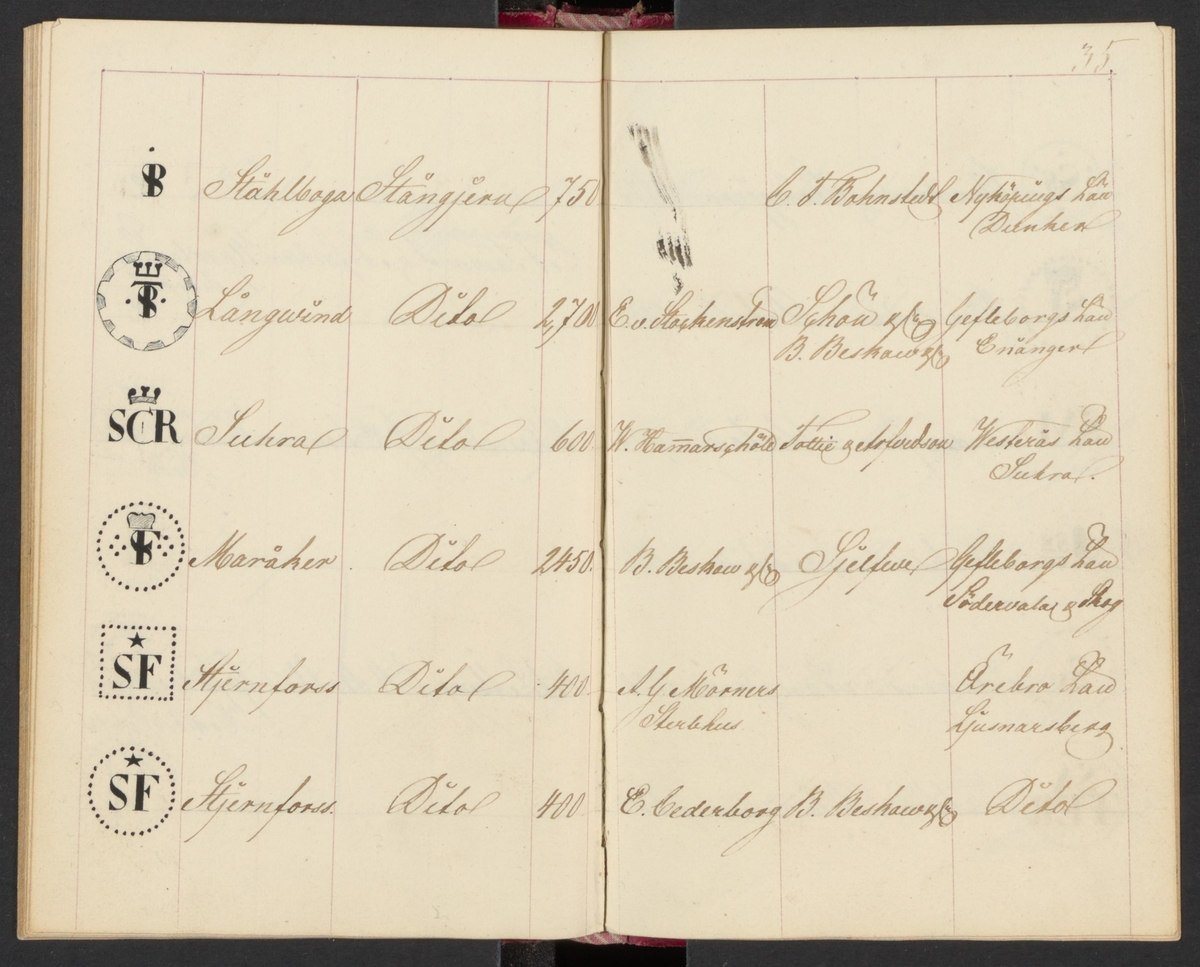 35.
SB Ståhlboga Stångjern 750 C. F. Bohnstedt Nyköpings Län
Dunker
Långwind Dito 2,700 E. v. Stockenström Schön &Co Gefleborgs Län
B. Beskow &Co Enånger
SCR Sura Dito 600 W. Hammarschöld Tottie & Arfwedson Westerås Län
Sura.
SF Maråker Dito 2450. B. Beskow &Co Sjelfwe Gefleborgs Län
Söderala & Skog
SF Stjernforss Dito 400 A. G. Mörners Örebro Län
Sterbhus Ljusnarsberg
SF Stjernforss. Dito 400 E. Cederborg B. Beskow &Co Dito